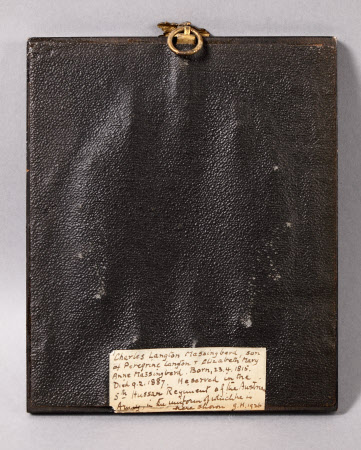 Charles Langton Massingberd, son
of Peregrine Langton & Elizabeth Mary
Anne Massingberd. Born, 23.4.1815.
Died 9.2.1887. He served in the
5th Hussar Regiment of the Austrian
Army, in the uniform of which he is
here shown